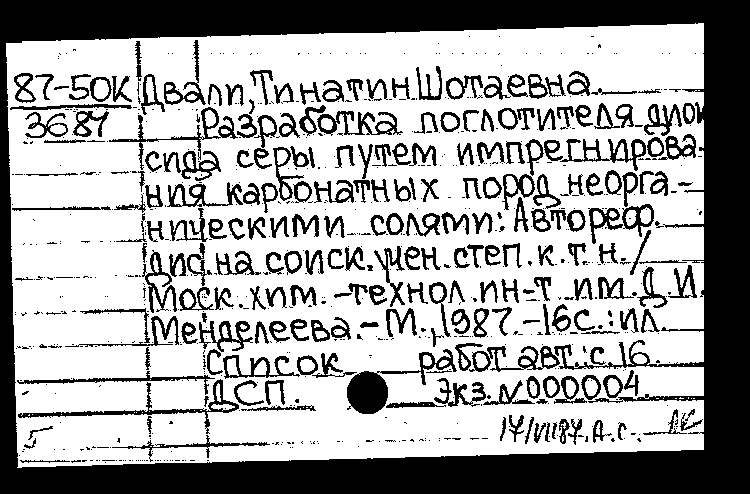 87-50К Двали, Тинатин Шотаевна.
3687 Разработка поглотителя диок
сида серы путем импрегнирова-
ния карбонатных пород неорга-
ническими солями: Автореф.
дис. на соиск. учен. степ. к.т.н. /
Моск. хим.-технол. ин-т им. Д.И.
Менделеева. - М., 1987. - 16с.: ил.
Список работ авт.: с. 16.
ДСП. Экз. N000004.
5 17/VII87. А.С.